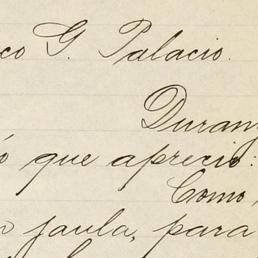 co G. Palacio.
Durang
ó que aprecio:
Como,
n jaula, para